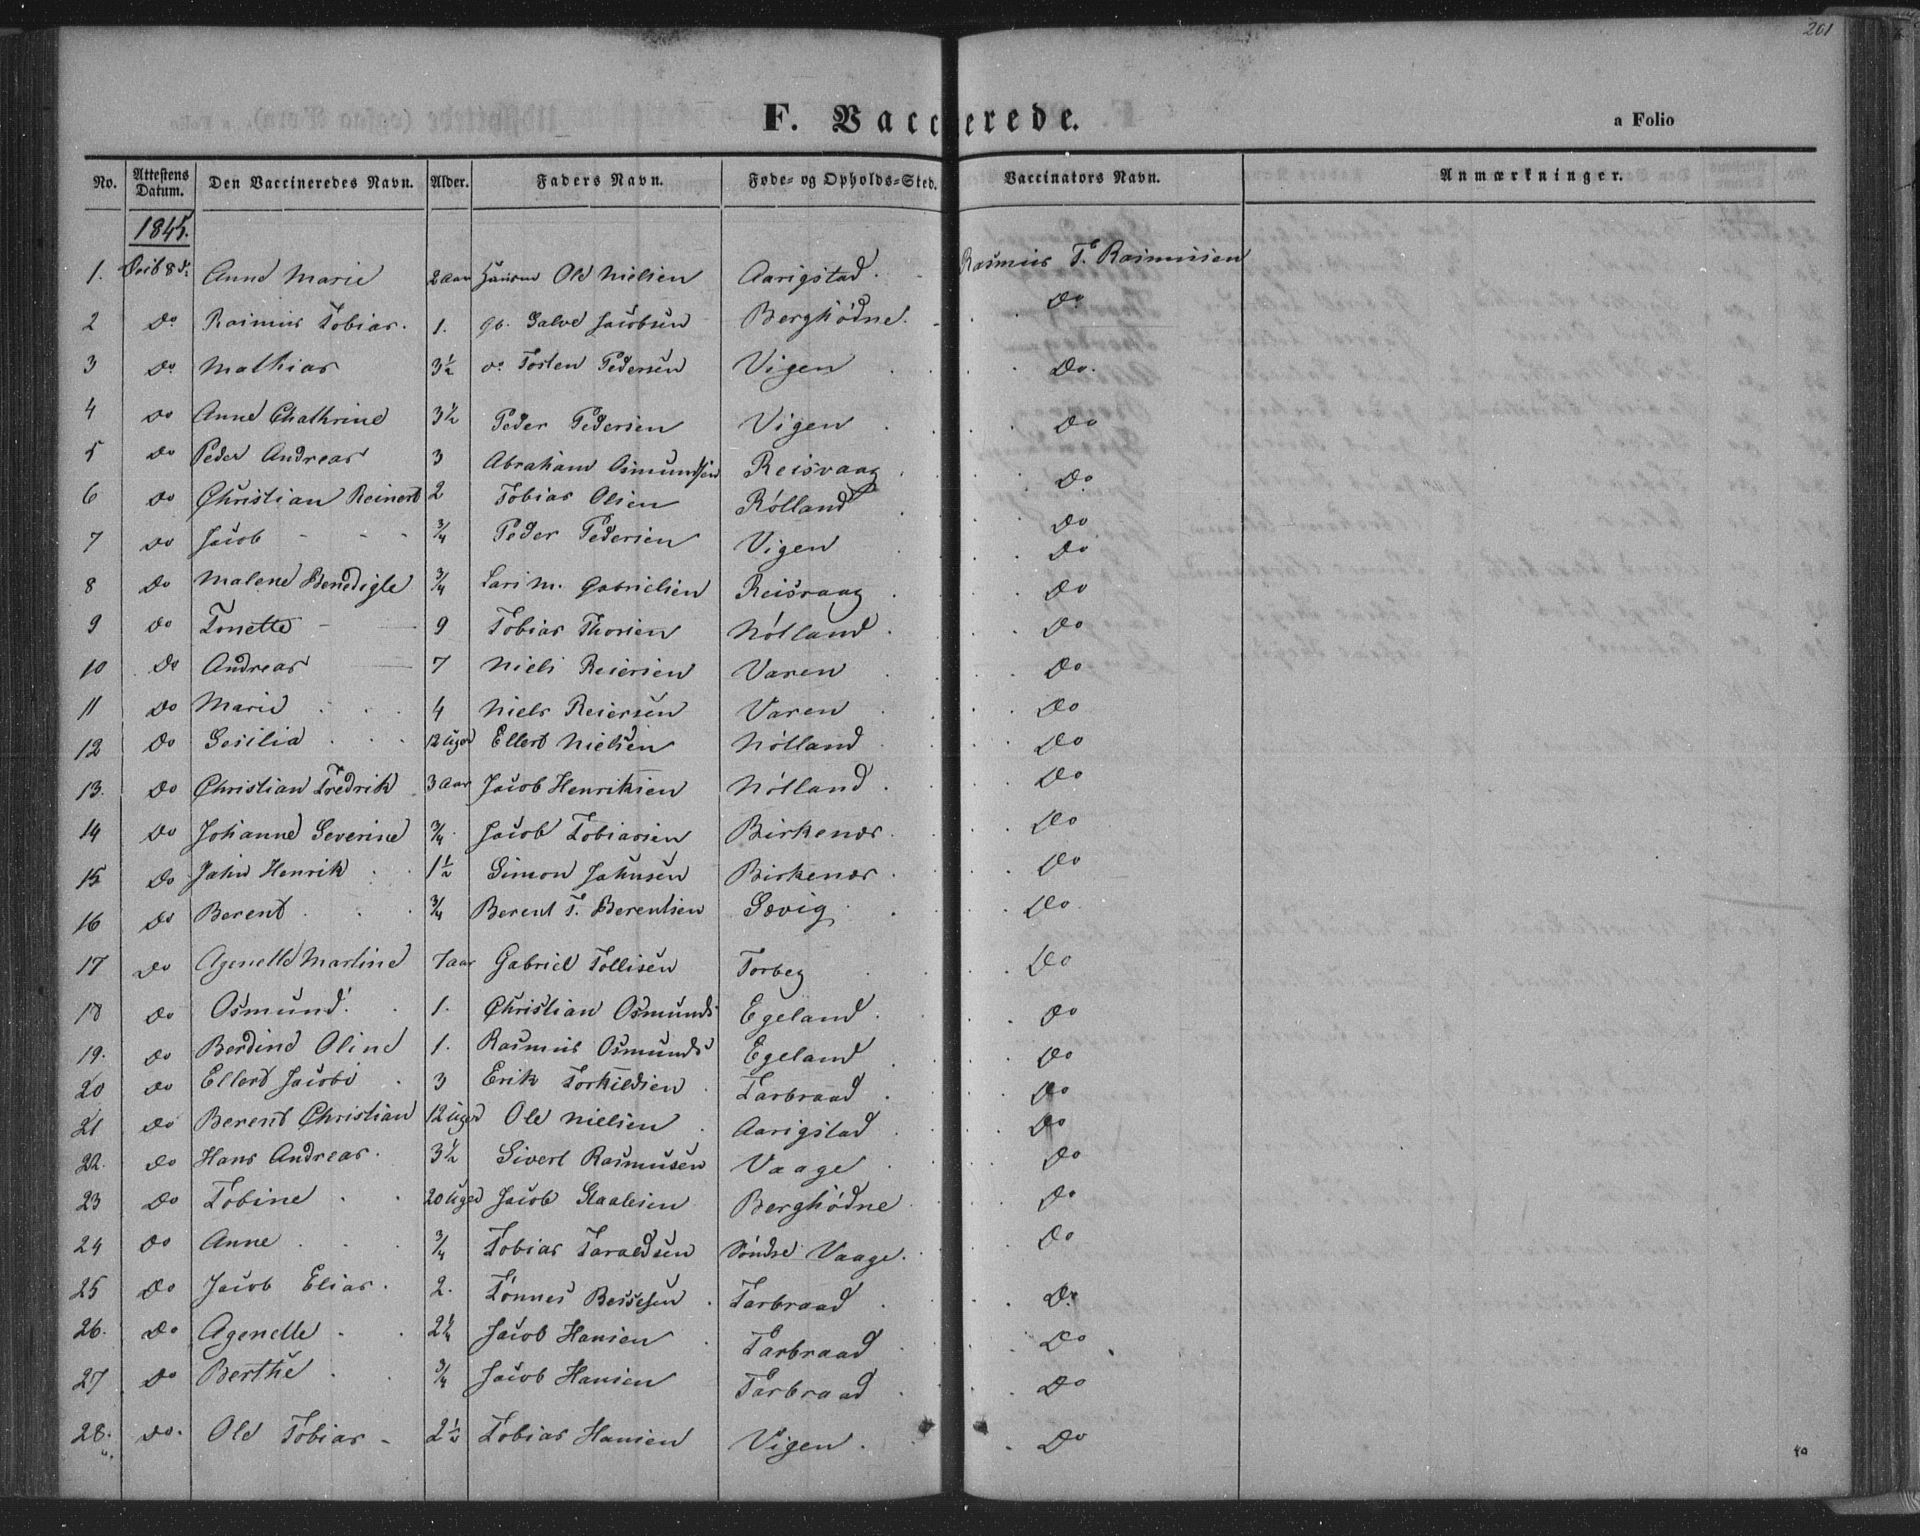 201
F. Vaccinerede. a Folio
No. Attestens Datum. Den Vaccineredes Navn. Alder. Faders Navn. Føde- og Opholds-Sted. Vaccinators Navn. Anmærkninger.
1845.
1. Octb 8de Anne Marie 2 aar Ole Nielsen Aarigstad. Rasmus T. Rasmussen
2 Do Rasmus Tobias. 1. Salve Jacobsen Berghødne. Do
3 Do Mathias 3½ Do Tosten Pedersen Vigen Do.
4 Do Anne Chathrine 3½ Peder Pedersen Vigen Do
5 Do Peder Andreas 3 Abraham Osmundsen Reisvaag Do
6 Do Christian Reinert 2 Tobias Olsen Rølland Do
7 Do Jacob ¾ Peder Pedersen Vigen Do
8 Do Malene Benedigte ¾ Lars M. Gabrielsen Reisvaag Do
9 Do Tonette 9 Tobias Thorsen Nólland Do
10 Do Andreas 7 Niels Reiersen Varen Do
11 Do Marie 4 Niels Reiersen Varen Do
12 Do Sesilia 12 Uger Ellert Nielsen Nólland Do
13. Do Christian Fredrik 3 aar Jacob Henriksen Nólland Do
14 Do Johanne Severine ¾ Jacob Tobiasen Birkenær Do
15 Do Jahn Henrik 1½ Simon Jahnsen Birkenær Do
16 Do Berent ¾ Berent T. Berentsen Sævig Do
17 Do Agenette Martine 7 aar Gabriel Tollisen Torbeg Do
18 Do Osmund 1. Christian Osmunds Egeland Do
19. Do Berdine Oline 1. Rasmus Osmunds Egeland Do
20 Do Ellert Jacobi 3 Erik Torkildsen Tarbraad Do
21 Do Berent Christian 12 Uger Ole Nielsen Aarigstad Do
22. Do Hans Andreas. 3½ Sivert Rasmusen Vaage Do
23 Do Tobine 20 Uger Jacob Staalesen Berghódne Do
24 Do Anne ¾ Tobias Taraldsen Søndre Vaage. Do
25 Do Jacob Elias. 2. Tønnes Bessesen Tarbraad Do
26. Do Agenette 2¼ Jacob Hansen Tarbraad Do
27 Do Berthe ¾ Jacob Hansen Tarbraad Do
28. Do. Ole Tobias 2½ Tobias Hansen Vigen. Do